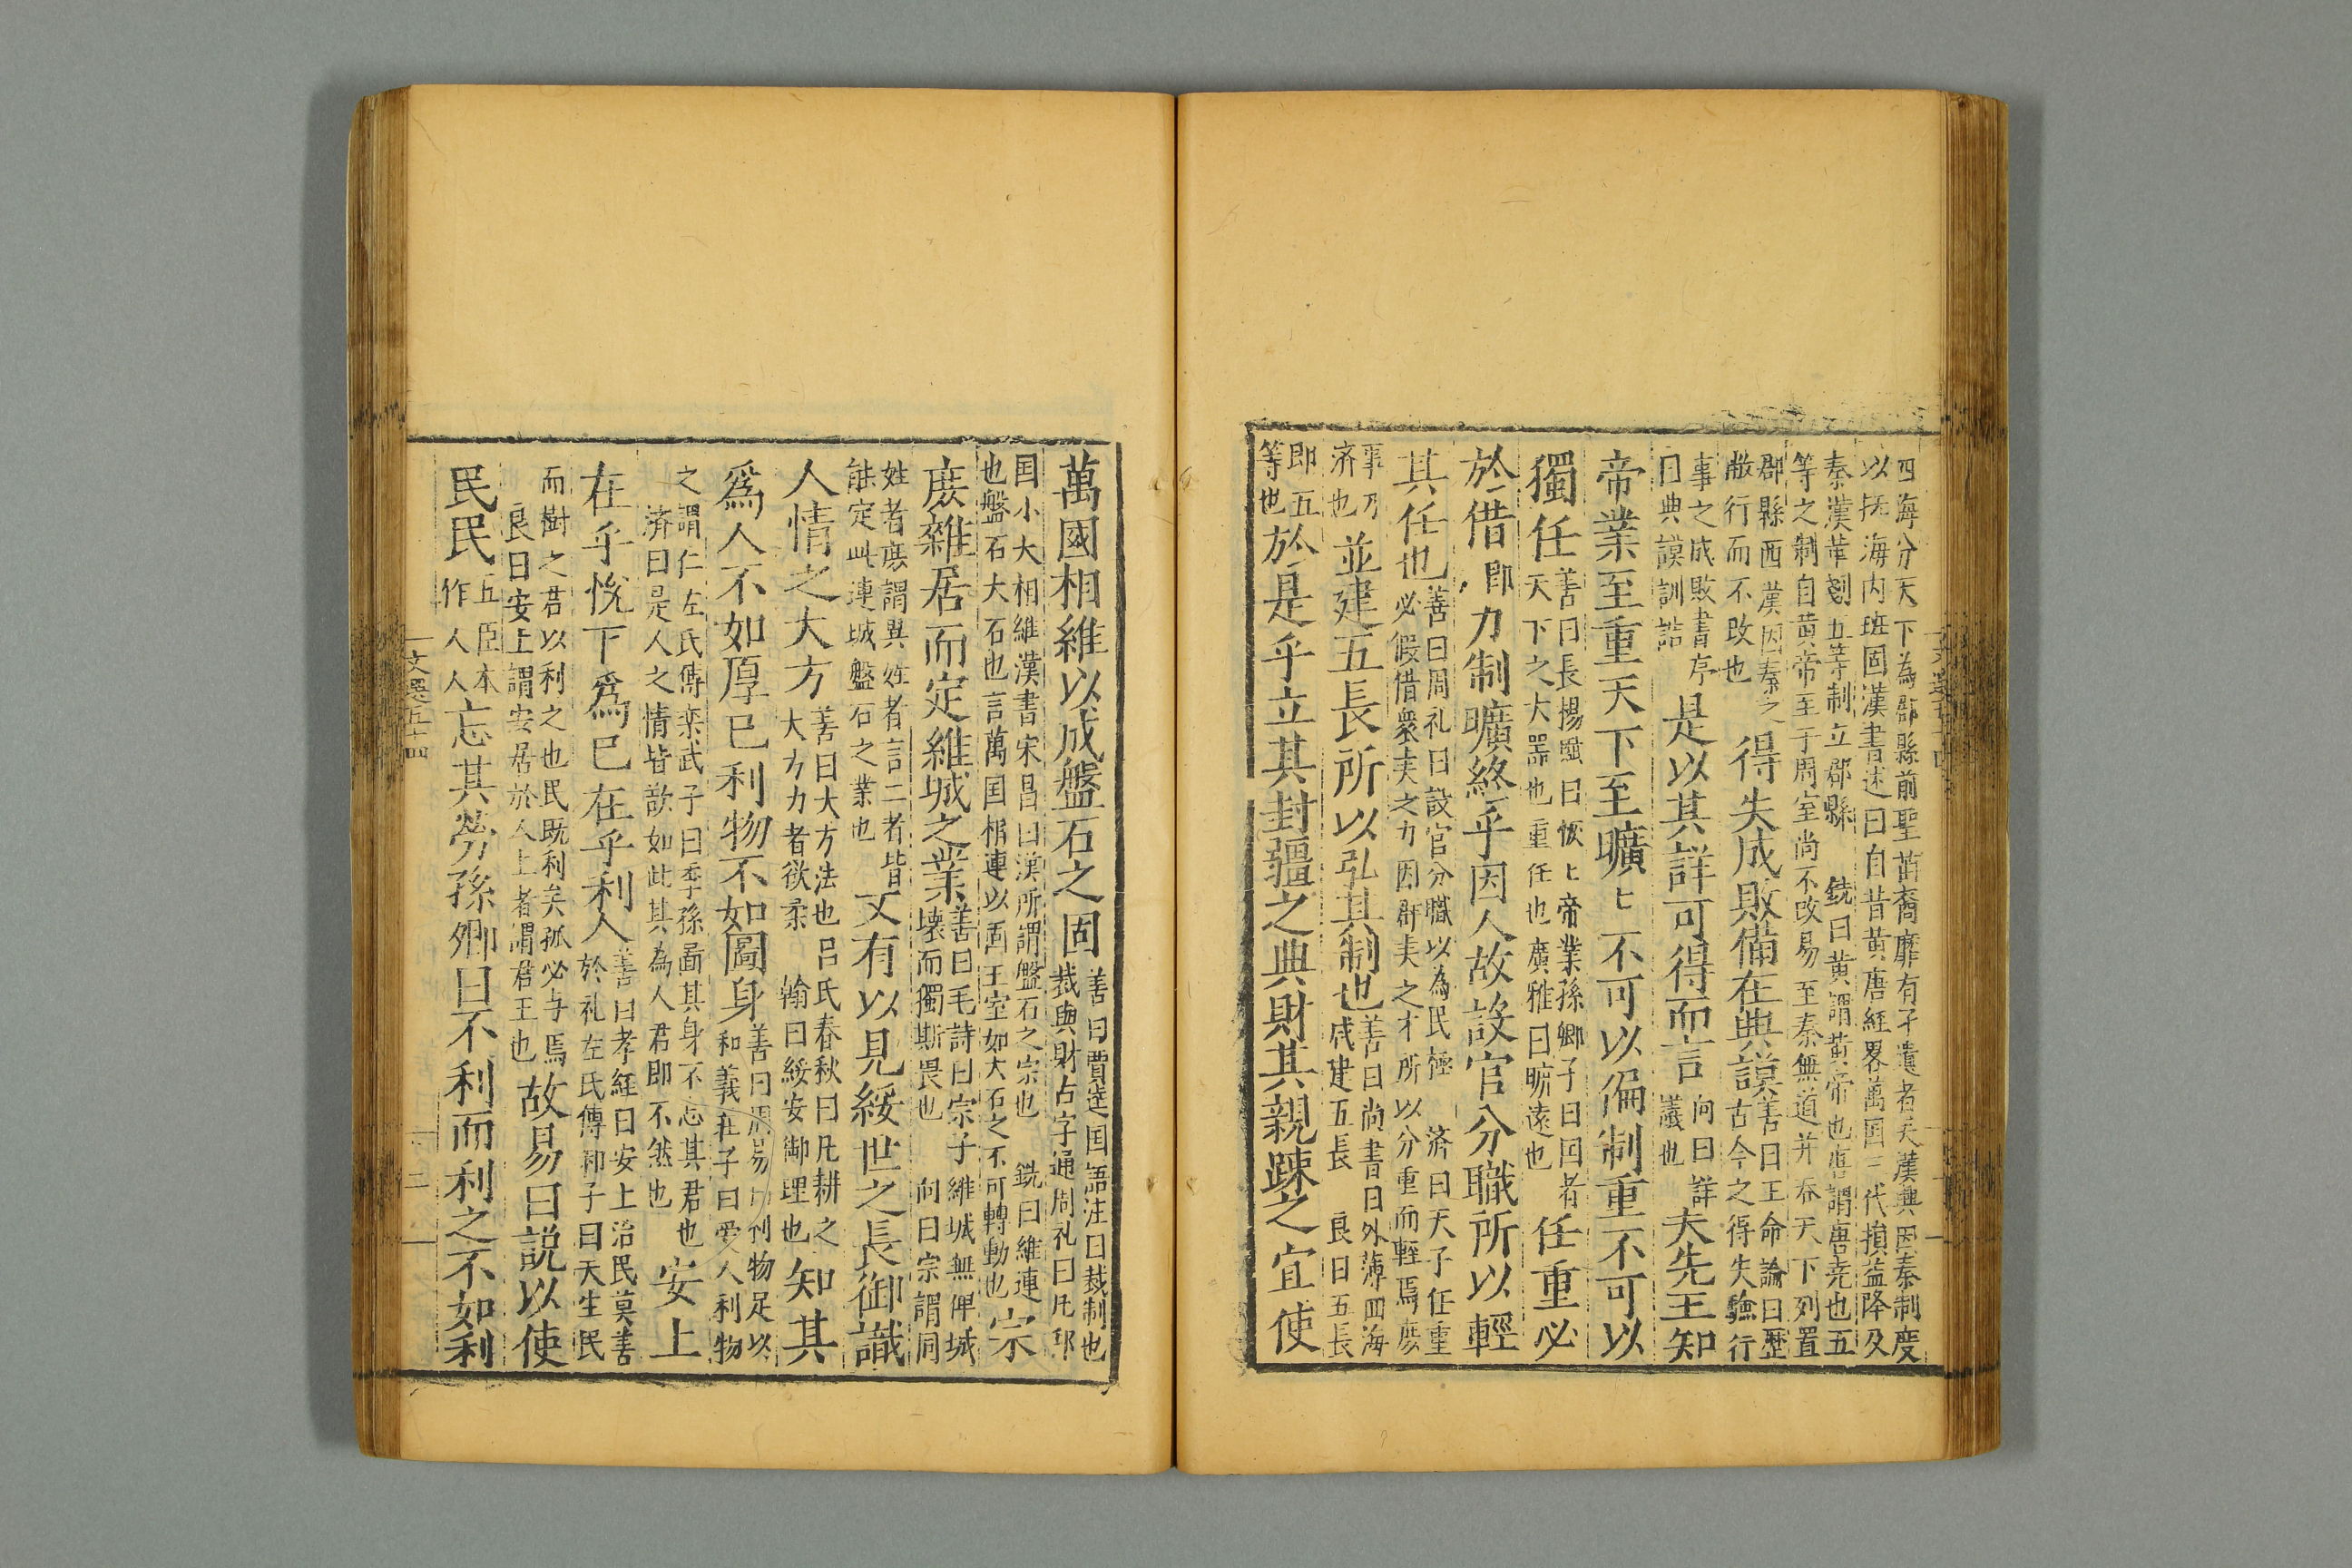 四海分天下為郡縣前聖苗裔靡有孑遺者矣漢興因秦制度
以抚海内班固漢書述曰自昔黃唐経畧萬国三代損益降及
秦漢革剗五等制立郡縣 銑曰黃謂黃帝也唐謂唐尭也五
等之制自黃帝至于周室尚不改易至秦無道并吞天下列置
郡縣西漢因秦之
敝行而不改也
得失成敗備在典謨
善曰王命論曰歴
古今之得失驗行
事之成敗書序
曰典謨訓誥
是以其詳可得而言
向曰詳
議也
夫先王知
帝業至重天下至曠〻不可以偏制重不可以
獨任
善曰長楊賦曰恢〻帝業孫卿子曰囯者
天下之大噐也重任也廣雅曰曠遠也
任重必
於借力制曠終乎因人故設官分職所以輕
其任也
善曰周礼曰設官分職以為民極 济曰天子任重
必假借衆夫之力因群夫之才所以分重而輕焉庻
事乃
济也
並建五長所以弘其制也
善曰尚書曰外薄四海
咸建五長 良曰五長
即五
等也
於是乎立其封疆之典財其親踈之宜使
萬國相維以成盤石之固
善曰賈逵囯語注曰裁制也
裁與財古字通周礼曰凡邦
囯小大相維漢書宋昌曰漢所謂盤石之宗也 銑曰維連
也盤石大石也言萬囯相連以固王室如大石之不可轉動也
宗
庻雜居而定維城之業
善曰毛詩曰宗子維城無俾城
壊而獨斯畏也 向曰宗謂同
姓者庻謂異姓者言二者皆
能定此連城盤石之業也
又有以見綏世之長御識
人情之大方
善曰大方法也吕氏春秋曰凡耕之
大方力者欲柔 翰曰綏安御理也
知其
為人不如厚已利物不如圖身
善曰周易曰利物足以
和義莊子曰愛人利物
之謂仁左氏傳栾武子曰季孫啚其身不忘其君也
济曰是人之情皆歆如此其為人君即不然也
安上
在乎悅下為已在乎利人
善曰孝経曰安上治民莫善
於礼左氏傳邾子曰天生民
而樹之君以利之也民既利矣孤必与焉
良曰安上謂安居於人上者謂君王也
故易曰説以使
民民
五臣本
作人人
忘其勞孫卿曰不利而利之不如利
文選五十四
二